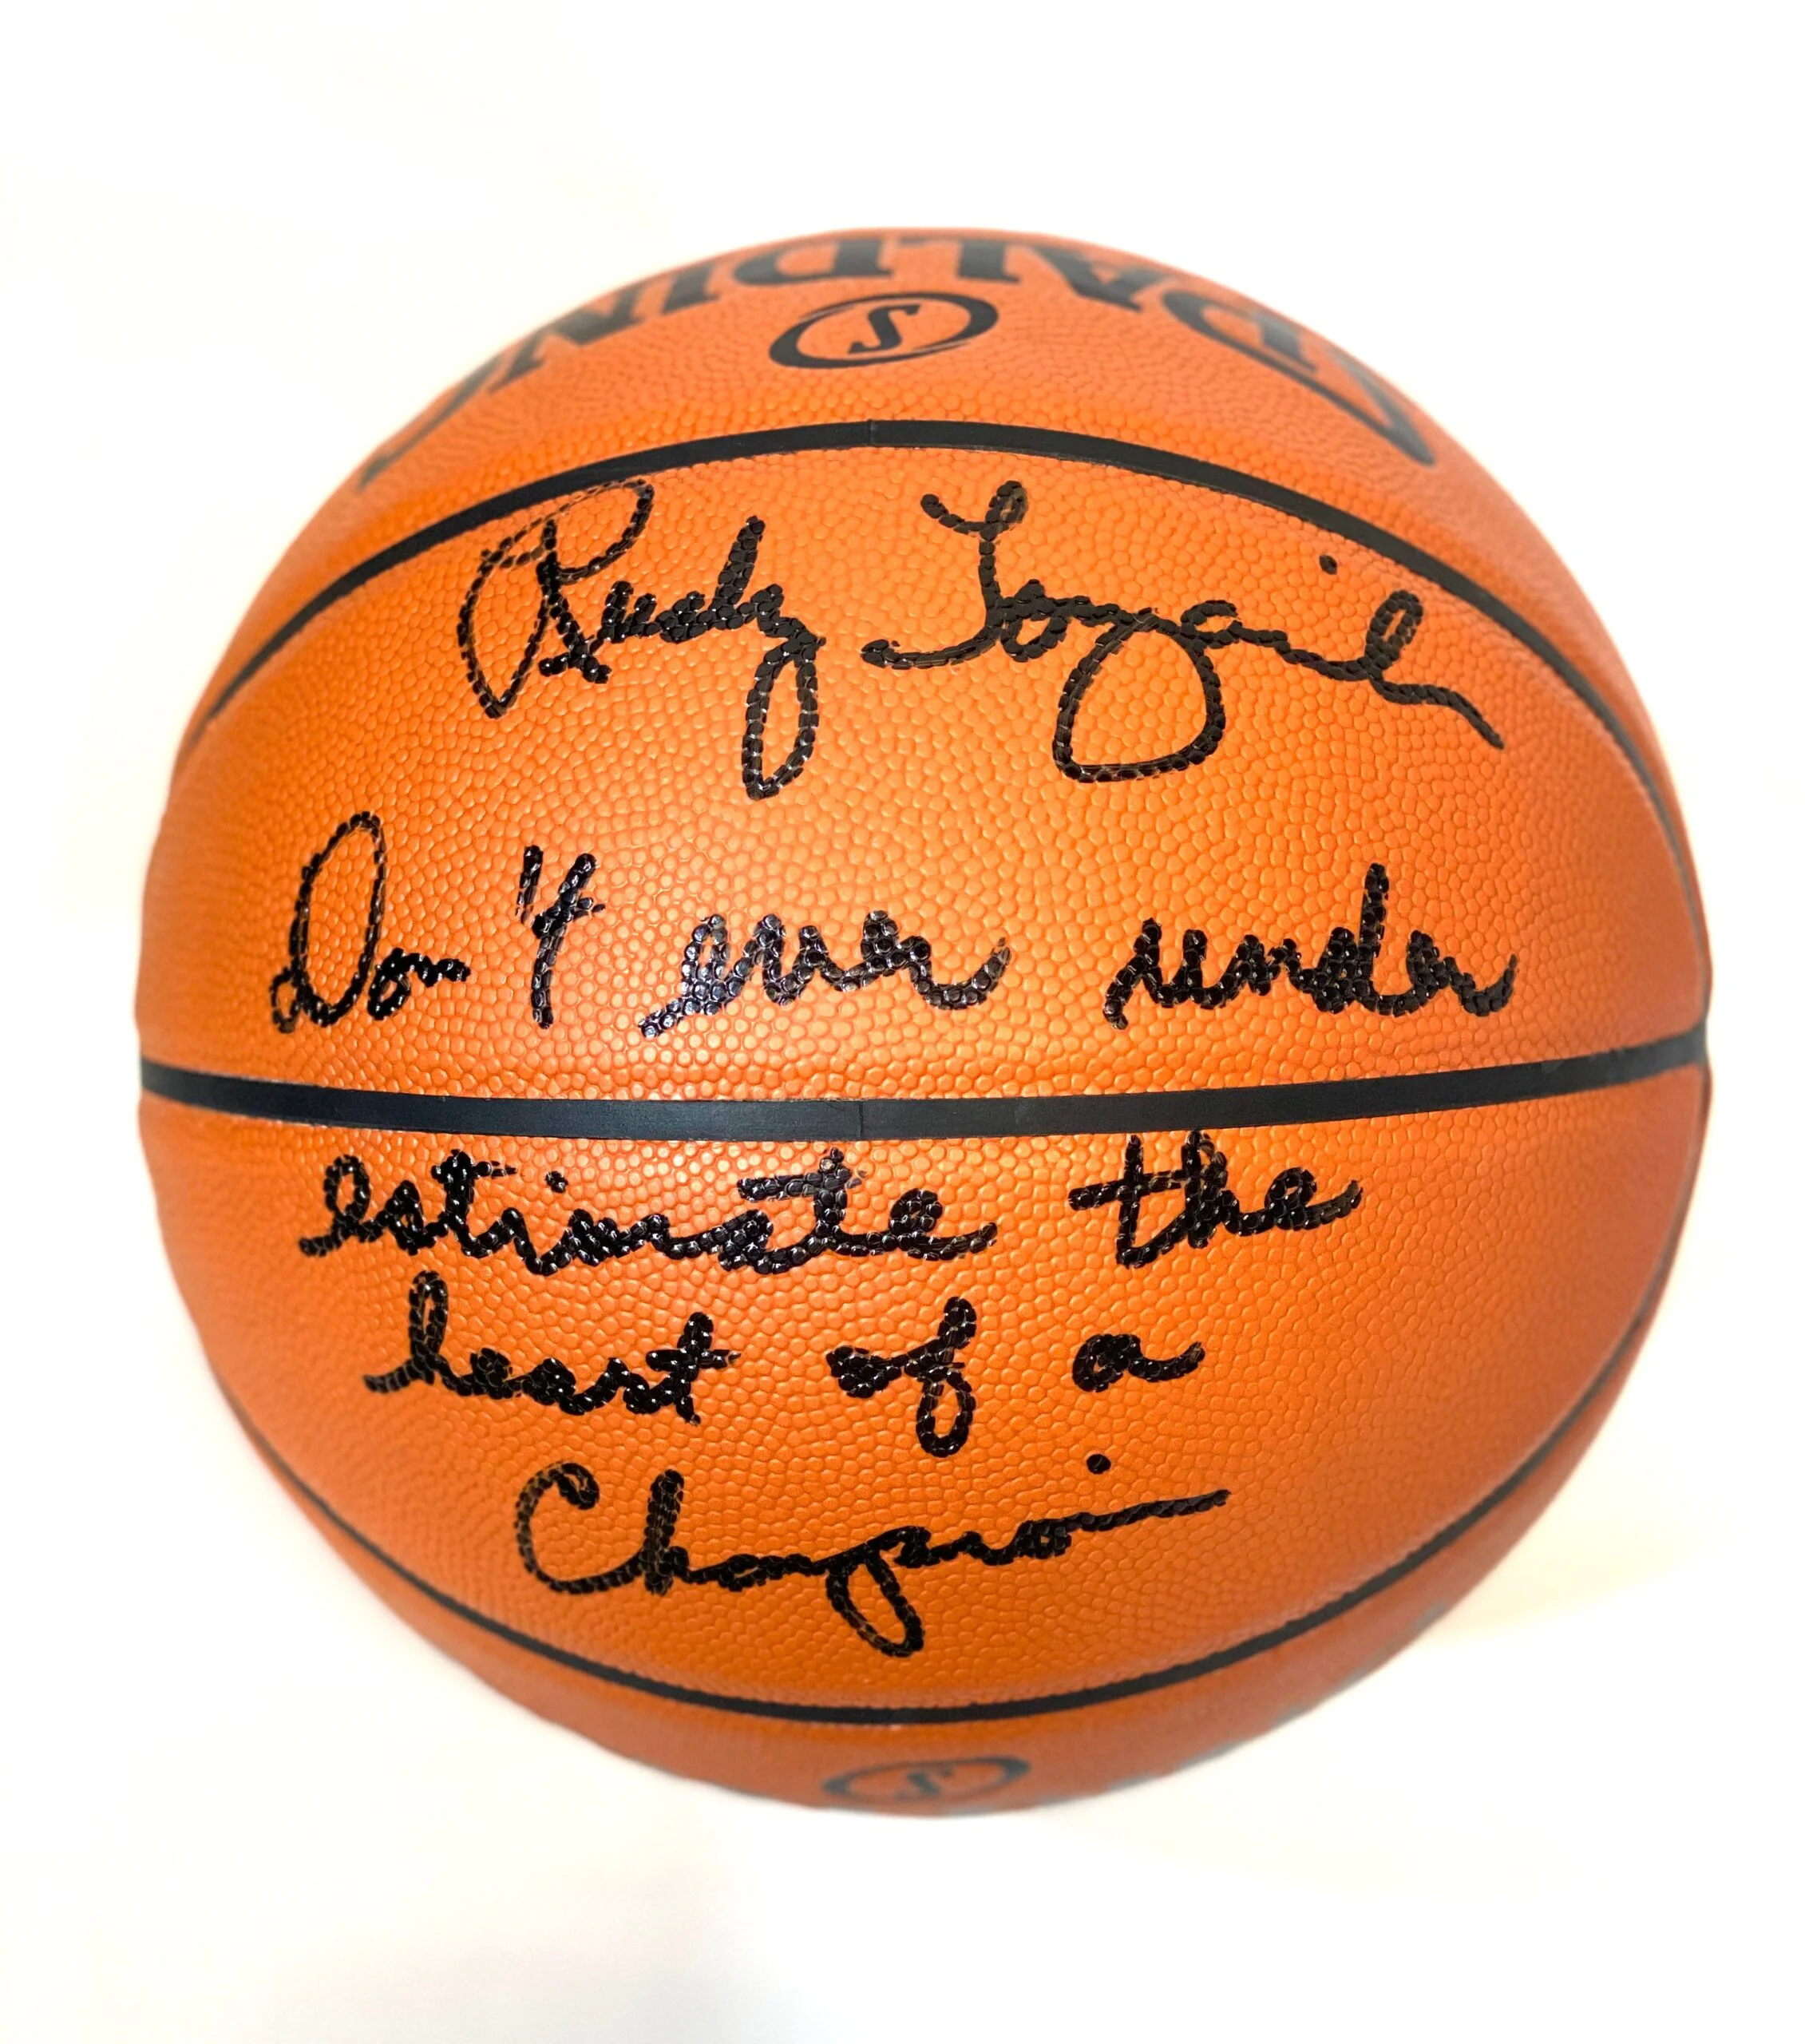 SPALDING
S
Rudy Tomjanovich
Don't ever under
estimate the
heart of a
Champion
S